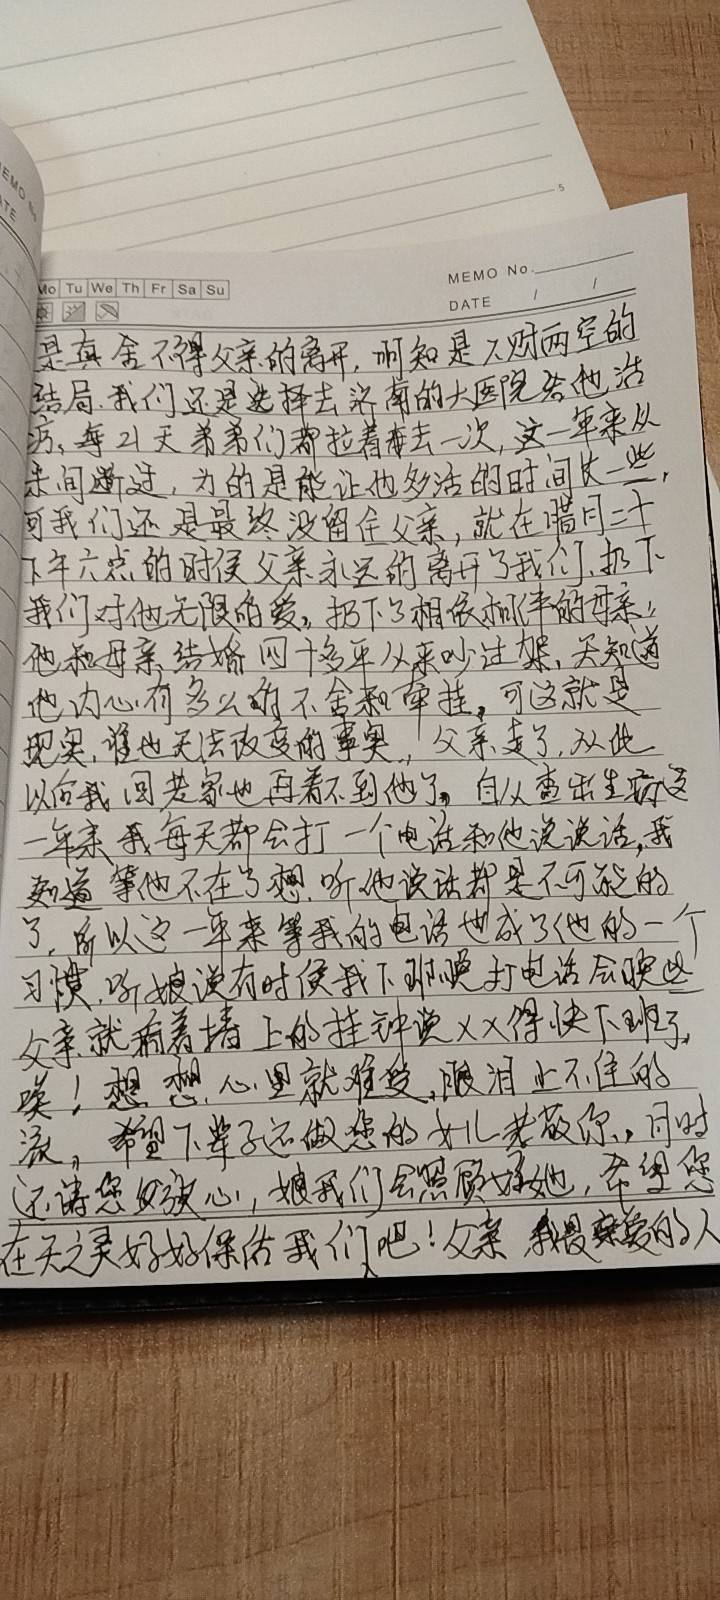 EMO No
ATE
5
Mo Tu We Th Fr Sa Su
MEMO No.
DATE / /
是真舍不得父亲的离开,明知是人财两空的
结局.我们还是选择去济南的大医院给他治
疗,每21天弟弟们都拉着去一次,这一年来从
未间断过,为的是能让他多活的时间长一些,
可我们还是最终没留住父亲,就在腊月二十
下午六点的时侯父亲永远的离开了我们.扔下
我们对他无限的爱,扔下了相依相伴的母亲,
他和母亲结婚四十多年从来吵过架,天知道
他内心有多么的不舍和牵挂,可这就是
现实,谁也无法改变的事实,父亲走了,从此
以后我回老家也再看不到他了,自从查出生病这
一年来我每天都会打一个电话和他说说话,我
知道等他不在了想.听他说话都是不可能的
了,所以这一年来等我的电话也成了他的一个
习惯.听娘说有时侯我下班晚打电话会晚些
父亲就看着墙上的挂钟说XX得快下班了,
唉!想想心里就难受,眼泪止不住的
流,希望下辈子还做您的女儿孝敬你,同时
还请您放心,娘我们会照顾好她,希望您
在天之灵好好保佑我们吧!父亲我最亲爱的人